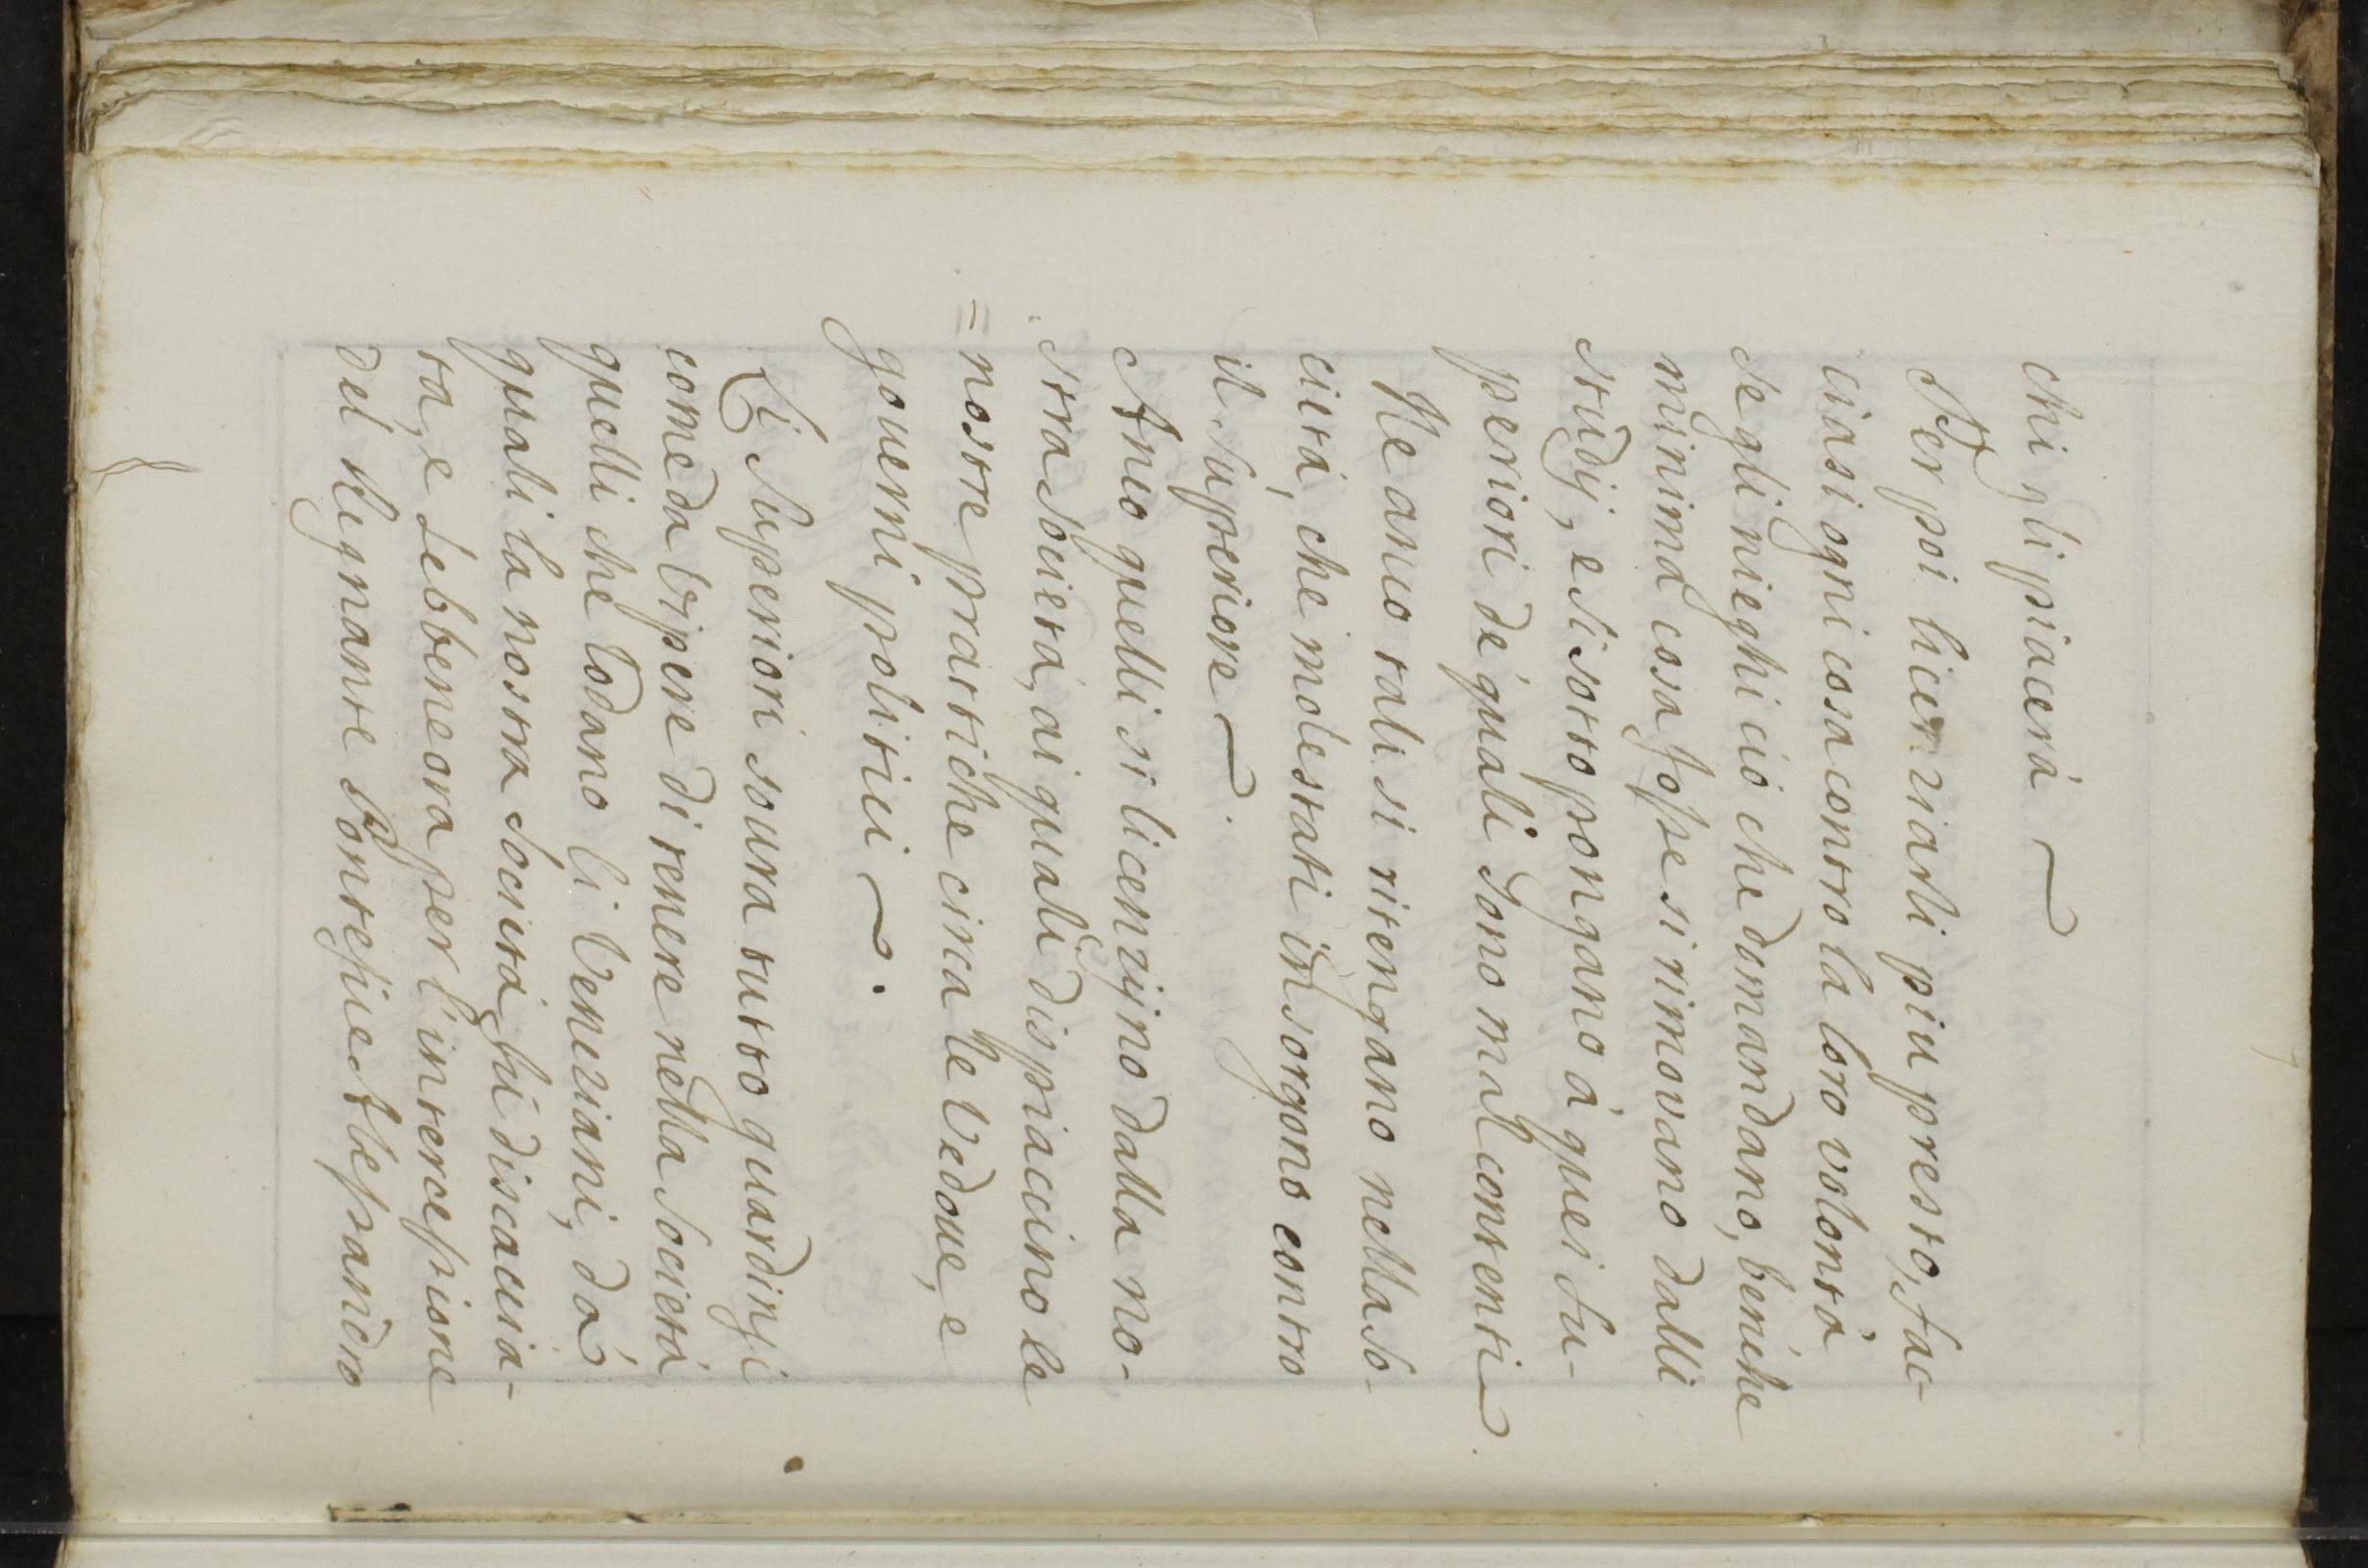 chi gli piacerà
Per poi licenziarli piu presto, fac-
ciasi ogni cosa contro la loro volontà
se gli nieghi ciò che domandano, benche
minima cosa fosse si rimovano dalli
studij, e si sottopongano à quei Su-
periori de' quali sono mal contenti.
Ne anco tali si ritengano nella So-
cietà, che molestati insorgono contro
il Superiore.
Anco quelli si licenzijno dalla no-
stra Società, ai quali dispiaccino le
=nostre prattiche circa le Vedove, e
governi politici.
Li Superiori soura tutto guardinsi
come da Vipere di tenere nella Società
quelli che lodano li Veneziani, dà
quali la nostra Società fù discaccia-
ta, e sebbene ora per l'intercessione
del Regnante Pontefice Alessandro